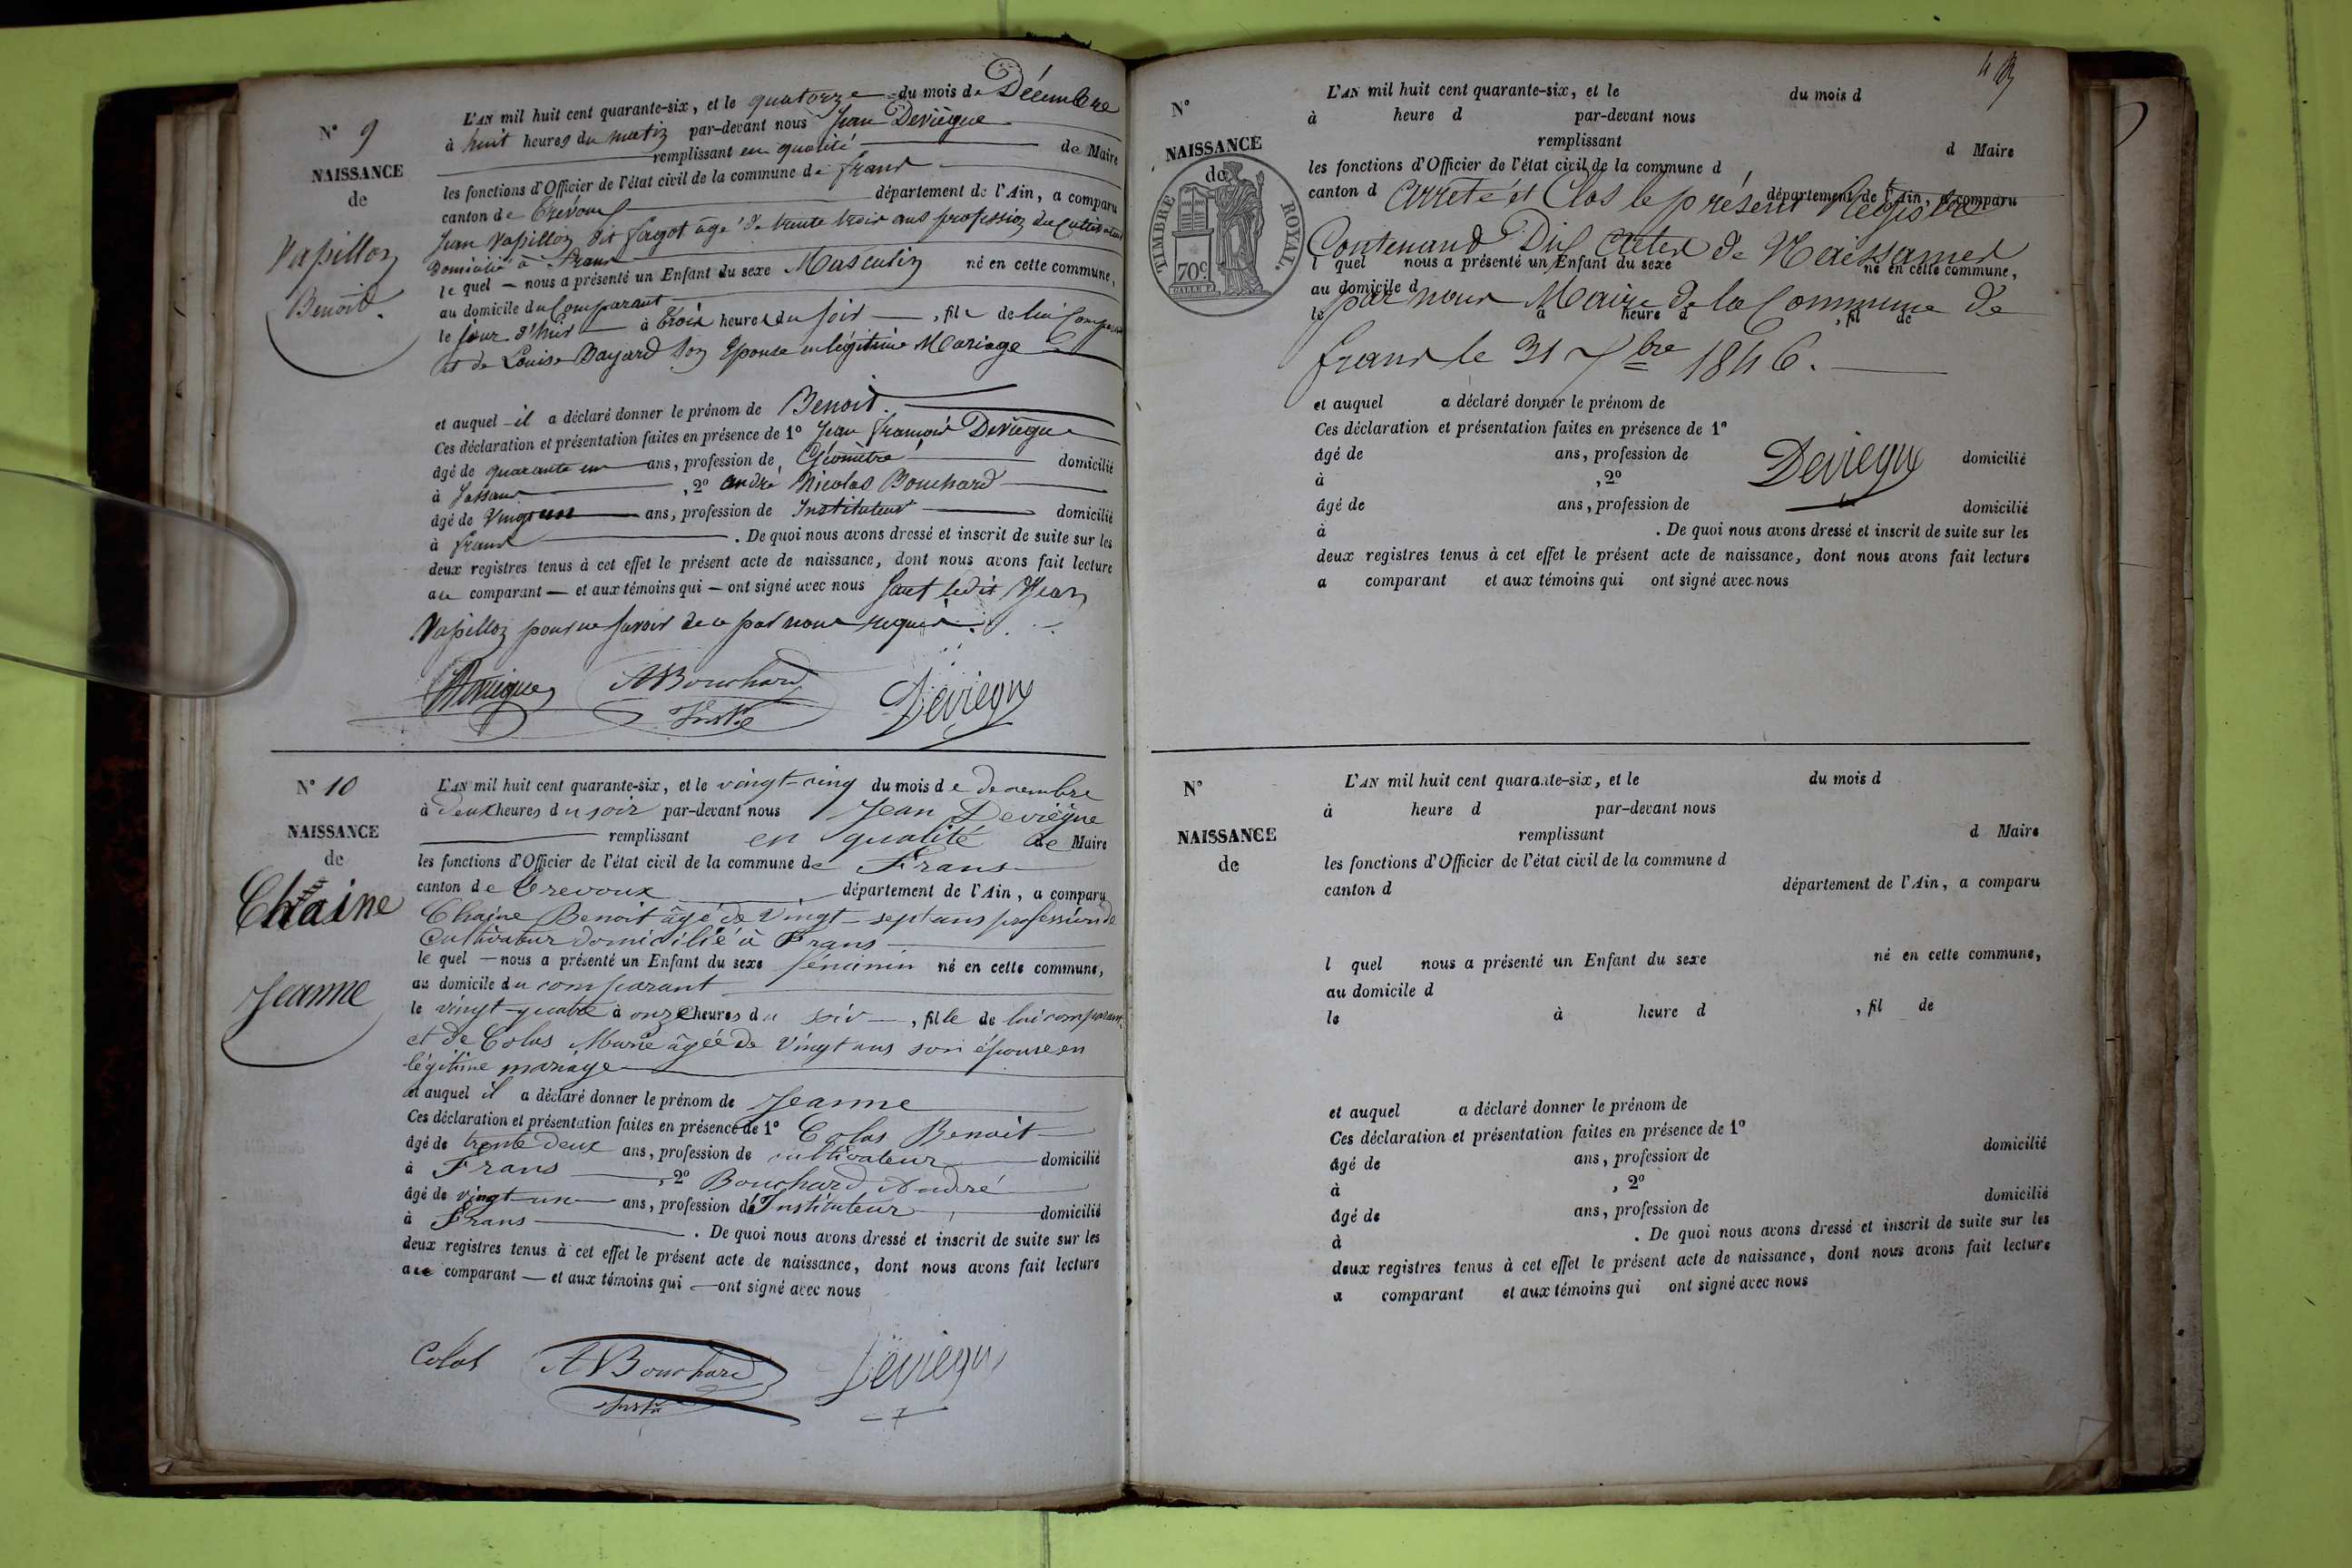 N° 9
NAISSANCE
de
Papillon
Benoit.
L'AN mil huit cent quarante-six, et le quatorze du mois de Décembre
à huit heures du matin par-devant nous Jean Deviègue
remplissant en qualité de Maire
les fonctions d'Officier de l'état civil de la commune de frans
canton de Trévoux département de l'Ain, a comparu
Jean Papillon dit fagot âgé de trente trois ans profession de Cultivateur
Domicilié à frans
le quel — nous a présenté un Enfant du sexe Masculin né en cette commune,
au domicile du Comparant
le jour d'hier à trois heures du soir, fils de lui Comparant
et de Louise Bayard son Epouse en légitime Mariage
et auquel il a déclaré donner le prénom de Benoit.
Ces déclaration et présentation faites en présence de 1° Jean françois Deviegue
âgé de quarante un ans, profession de Géomètre domicilié
à Jassans, 2° andré Nicolas Bouchard
âgé de Vingt un ans, profession de Instituteur domicilié
à frans. De quoi nous avons dressé et inscrit de suite sur les
deux registres tenus à cet effet le présent acte de naissance, dont nous avons fait lecture
au comparant — et aux témoins qui — ont signé avec nous sauf ledit Jean
Papillon pour ne savoir de ce par nous requis.
Deviegue ABouchard Deviegue
Inst.
N° 10
NAISSANCE
de
Chaine
Jeanne
L'AN mil huit cent quarante-six, et le vingt-cinq du mois de decembre
à deux heures du soir par-devant nous Jean Deviègue
remplissant en qualité de Maire
les fonctions d'Officier de l'état civil de la commune de Frans
canton de Trevoux département de l'Ain, a comparu
Chaine Benoit âgé de Vingt-sept ans profession de
Cultivateur domicilié à Frans
le quel — nous a présenté un Enfant du sexe féminin né en cette commune,
au domicile du comparant
le vingt-quatre à onze heures du soir —, fille de lui comparant
et de Colas Marie âgée de Vingt ans son épouse en
légitime mariage
et auquel il a déclaré donner le prénom de Jeanne
Ces déclaration et présentation faites en présence de 1° Colas Benoit
âgé de trente deux ans, profession de cultivateur domicilié
à Frans, 2° Bouchard André
âgé de vingt-un ans, profession d'Instituteur domicilié
à Frans. De quoi nous avons dressé et inscrit de suite sur les
deux registres tenus à cet effet le présent acte de naissance, dont nous avons fait lecture
au comparant — et aux témoins qui — ont signé avec nous
Colas ABouchard Deviegue
N°
NAISSANCE
de
TIMBRE ROYAL.
70c
L'AN mil huit cent quarante-six, et le du mois d
à heure d par-devant nous
remplissant d Maire
les fonctions d'Officier de l'état civil de la commune d
canton d département de l'Ain, a comparu
Arrêté et Clos le présent Registre
Contenant Dix Actes de Naissances
l quel nous a présenté un Enfant du sexe né en cette commune,
au domicile d
par nous Maire de la Commune de
le à heure d , fil de
frans le 31 Xbre 1846.
et auquel a déclaré donner le prénom de
Ces déclaration et présentation faites en présence de 1°
âgé de ans, profession de domicilié
Deviegue
à , 2°
âgé de ans, profession de domicilié
à . De quoi nous avons dressé et inscrit de suite sur les
deux registres tenus à cet effet le présent acte de naissance, dont nous avons fait lecture
a comparant et aux témoins qui ont signé avec nous
N°
NAISSANCE
de
L'AN mil huit cent quarante-six, et le du mois d
à heure d par-devant nous
remplissant d Maire
les fonctions d'Officier de l'état civil de la commune d
canton d département de l'Ain, a comparu
l quel nous a présenté un Enfant du sexe né en cette commune,
au domicile d
le à heure d , fil de
et auquel a déclaré donner le prénom de
Ces déclaration et présentation faites en présence de 1°
âgé de ans, profession de domicilié
à , 2°
âgé de ans, profession de domicilié
à . De quoi nous avons dressé et inscrit de suite sur les
deux registres tenus à cet effet le présent acte de naissance, dont nous avons fait lecture
a comparant et aux témoins qui ont signé avec nous